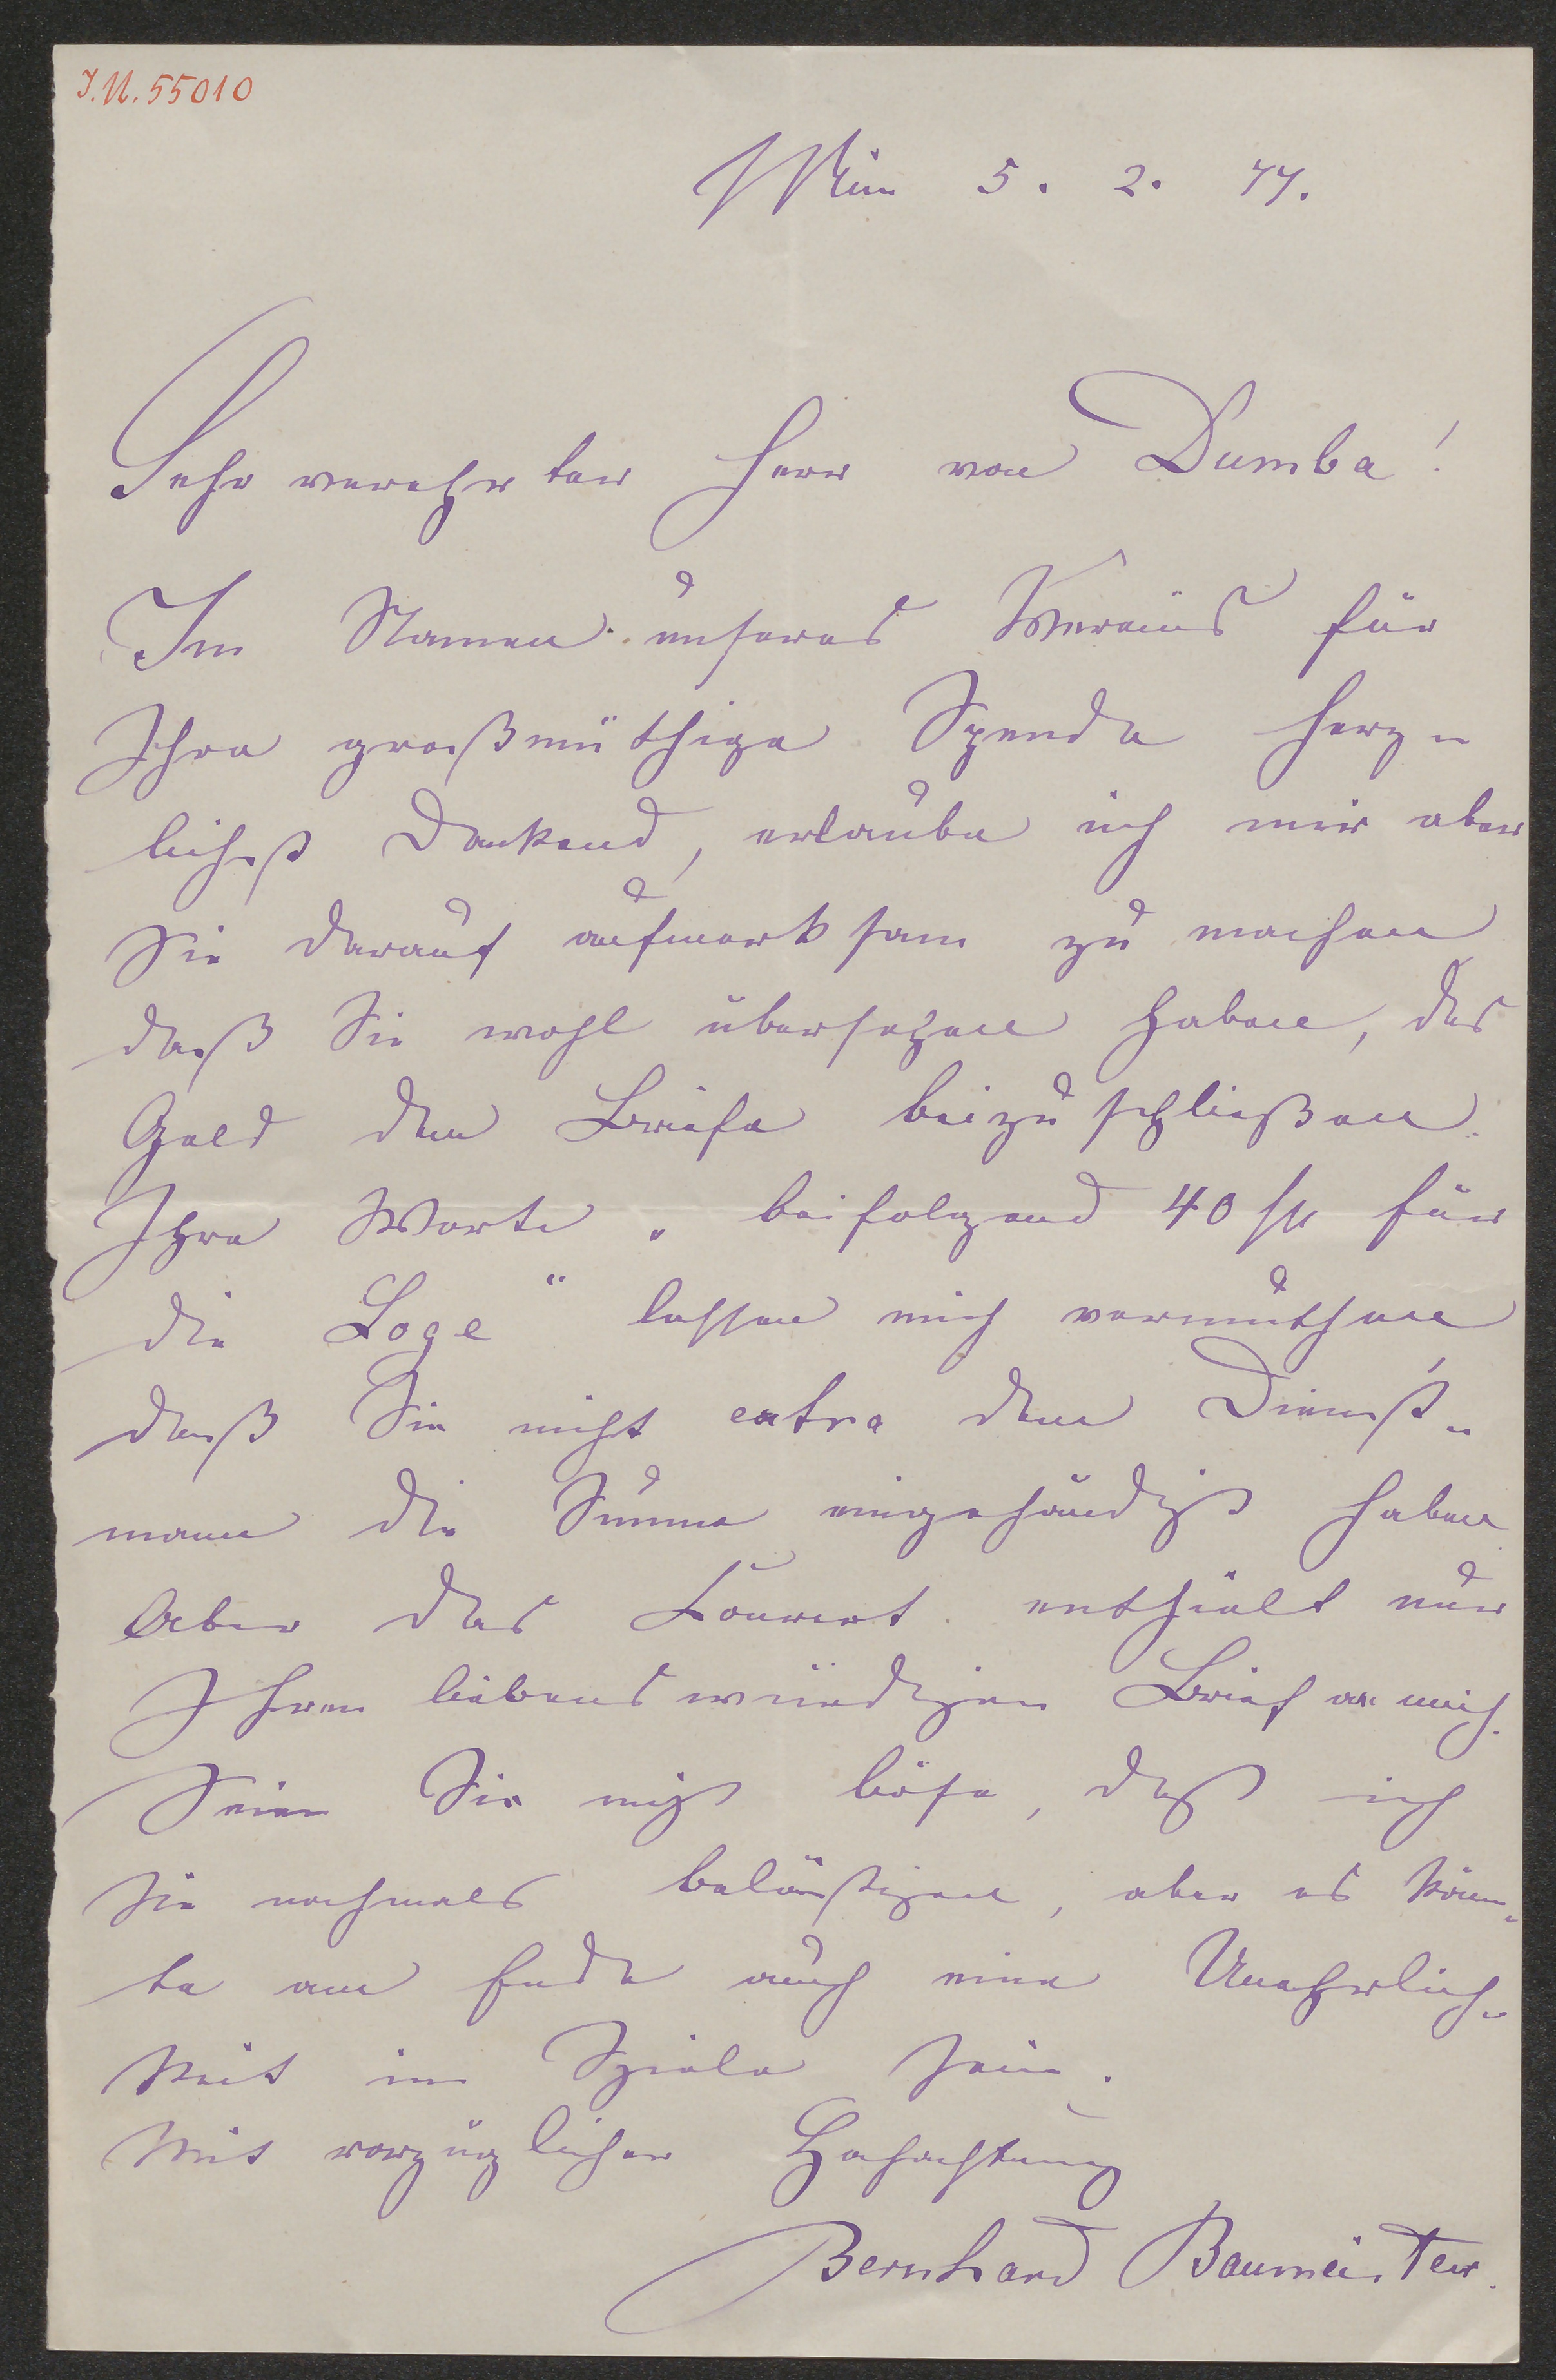 J.N. 55010
Wien 5. 2. 77.
Sehr verehrter Herr von Dumba!
Im Namen unseres Vereins für
Ihre großmüthige Spende herz-
lichst dankend, erlaube ich mir aber
Sie darauf aufmerksam zu machen
daß Sie wohl übersehen haben, das
Geld dem Briefe beizuschließen.
Ihre Worte „beifolgend 40 fl für
die Loge" lassen mich vermuthen
daß Sie nicht extra dem Dienst-
mann die Summe eingehändigt haben
Aber das Couvert enthielt nur
Ihren liebenswürdigen Brief an mich.
Seien Sie nicht böse, daß ich
Sie nochmals belästigen, aber es könn-
te am Ende auch eine Unehrlich-
keit im Spiele sein.
Mit vorzüglicher Hochachtung
Bernhard Baumeister.